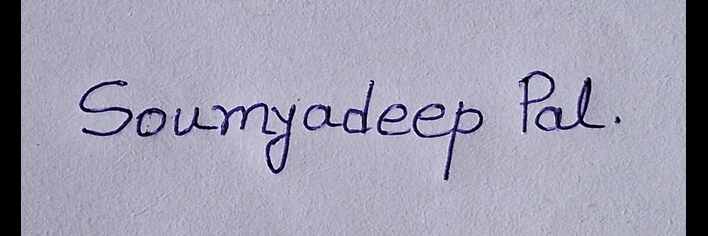 Soumyadeep Pal.